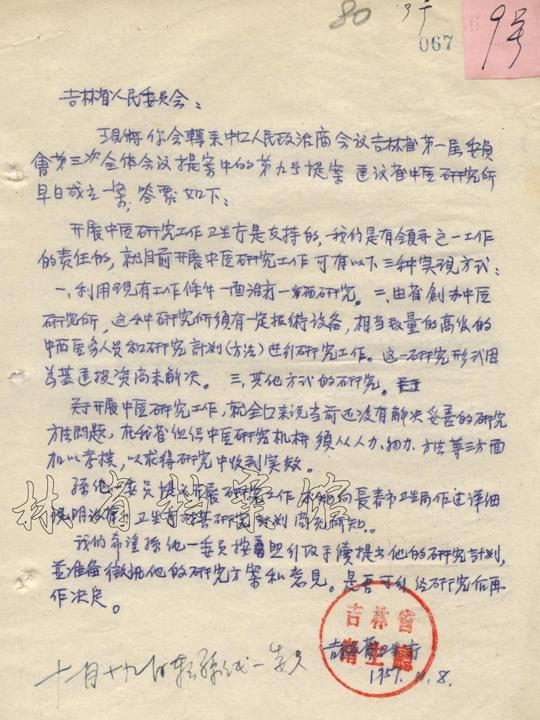 80
067
9号
吉林省人民委员会：
现将你会轉来中口人民政治商会议吉林省第一届委員
會第三次全体会议提案中的第九号提案 建议省中医研究所
早日成立一案，答覆如下：
开展中医研究工作卫生厅是支持的，我们是有領导这一工作
的責任的，就目前开展中医研究工作可有以下三种实現方式：
一、利用现有工作條件一面治疗一面研究。二、由省創办中医
研究所，这种研究所須有一定规模设备，相当数量的高级的
中西医务人員和研究計划（方法）进行研究工作。这一研究形式因
为基建投資尚未解决。三、其他方式的研究。
关于开展中医研究工作，就全口来说当前还没有解决妥善的研究
方法問題，在我省但任中医研究机構 須从人力、物力、方法等三方面
加以考慮，以求得研究中收到实效。
孫 委員 提 开展研究工作 向長春市卫生局作过详细
说明 卫生 研究計划 尚 。
我们希望孫 一委員按照 行政手續提出他的研究計划，
並准备徵 他的研究方案和意見。是否可 经研究后再
作决定。
吉林省衛生廳
1957.11.8.
十月十九日 孫 一
林省档案馆